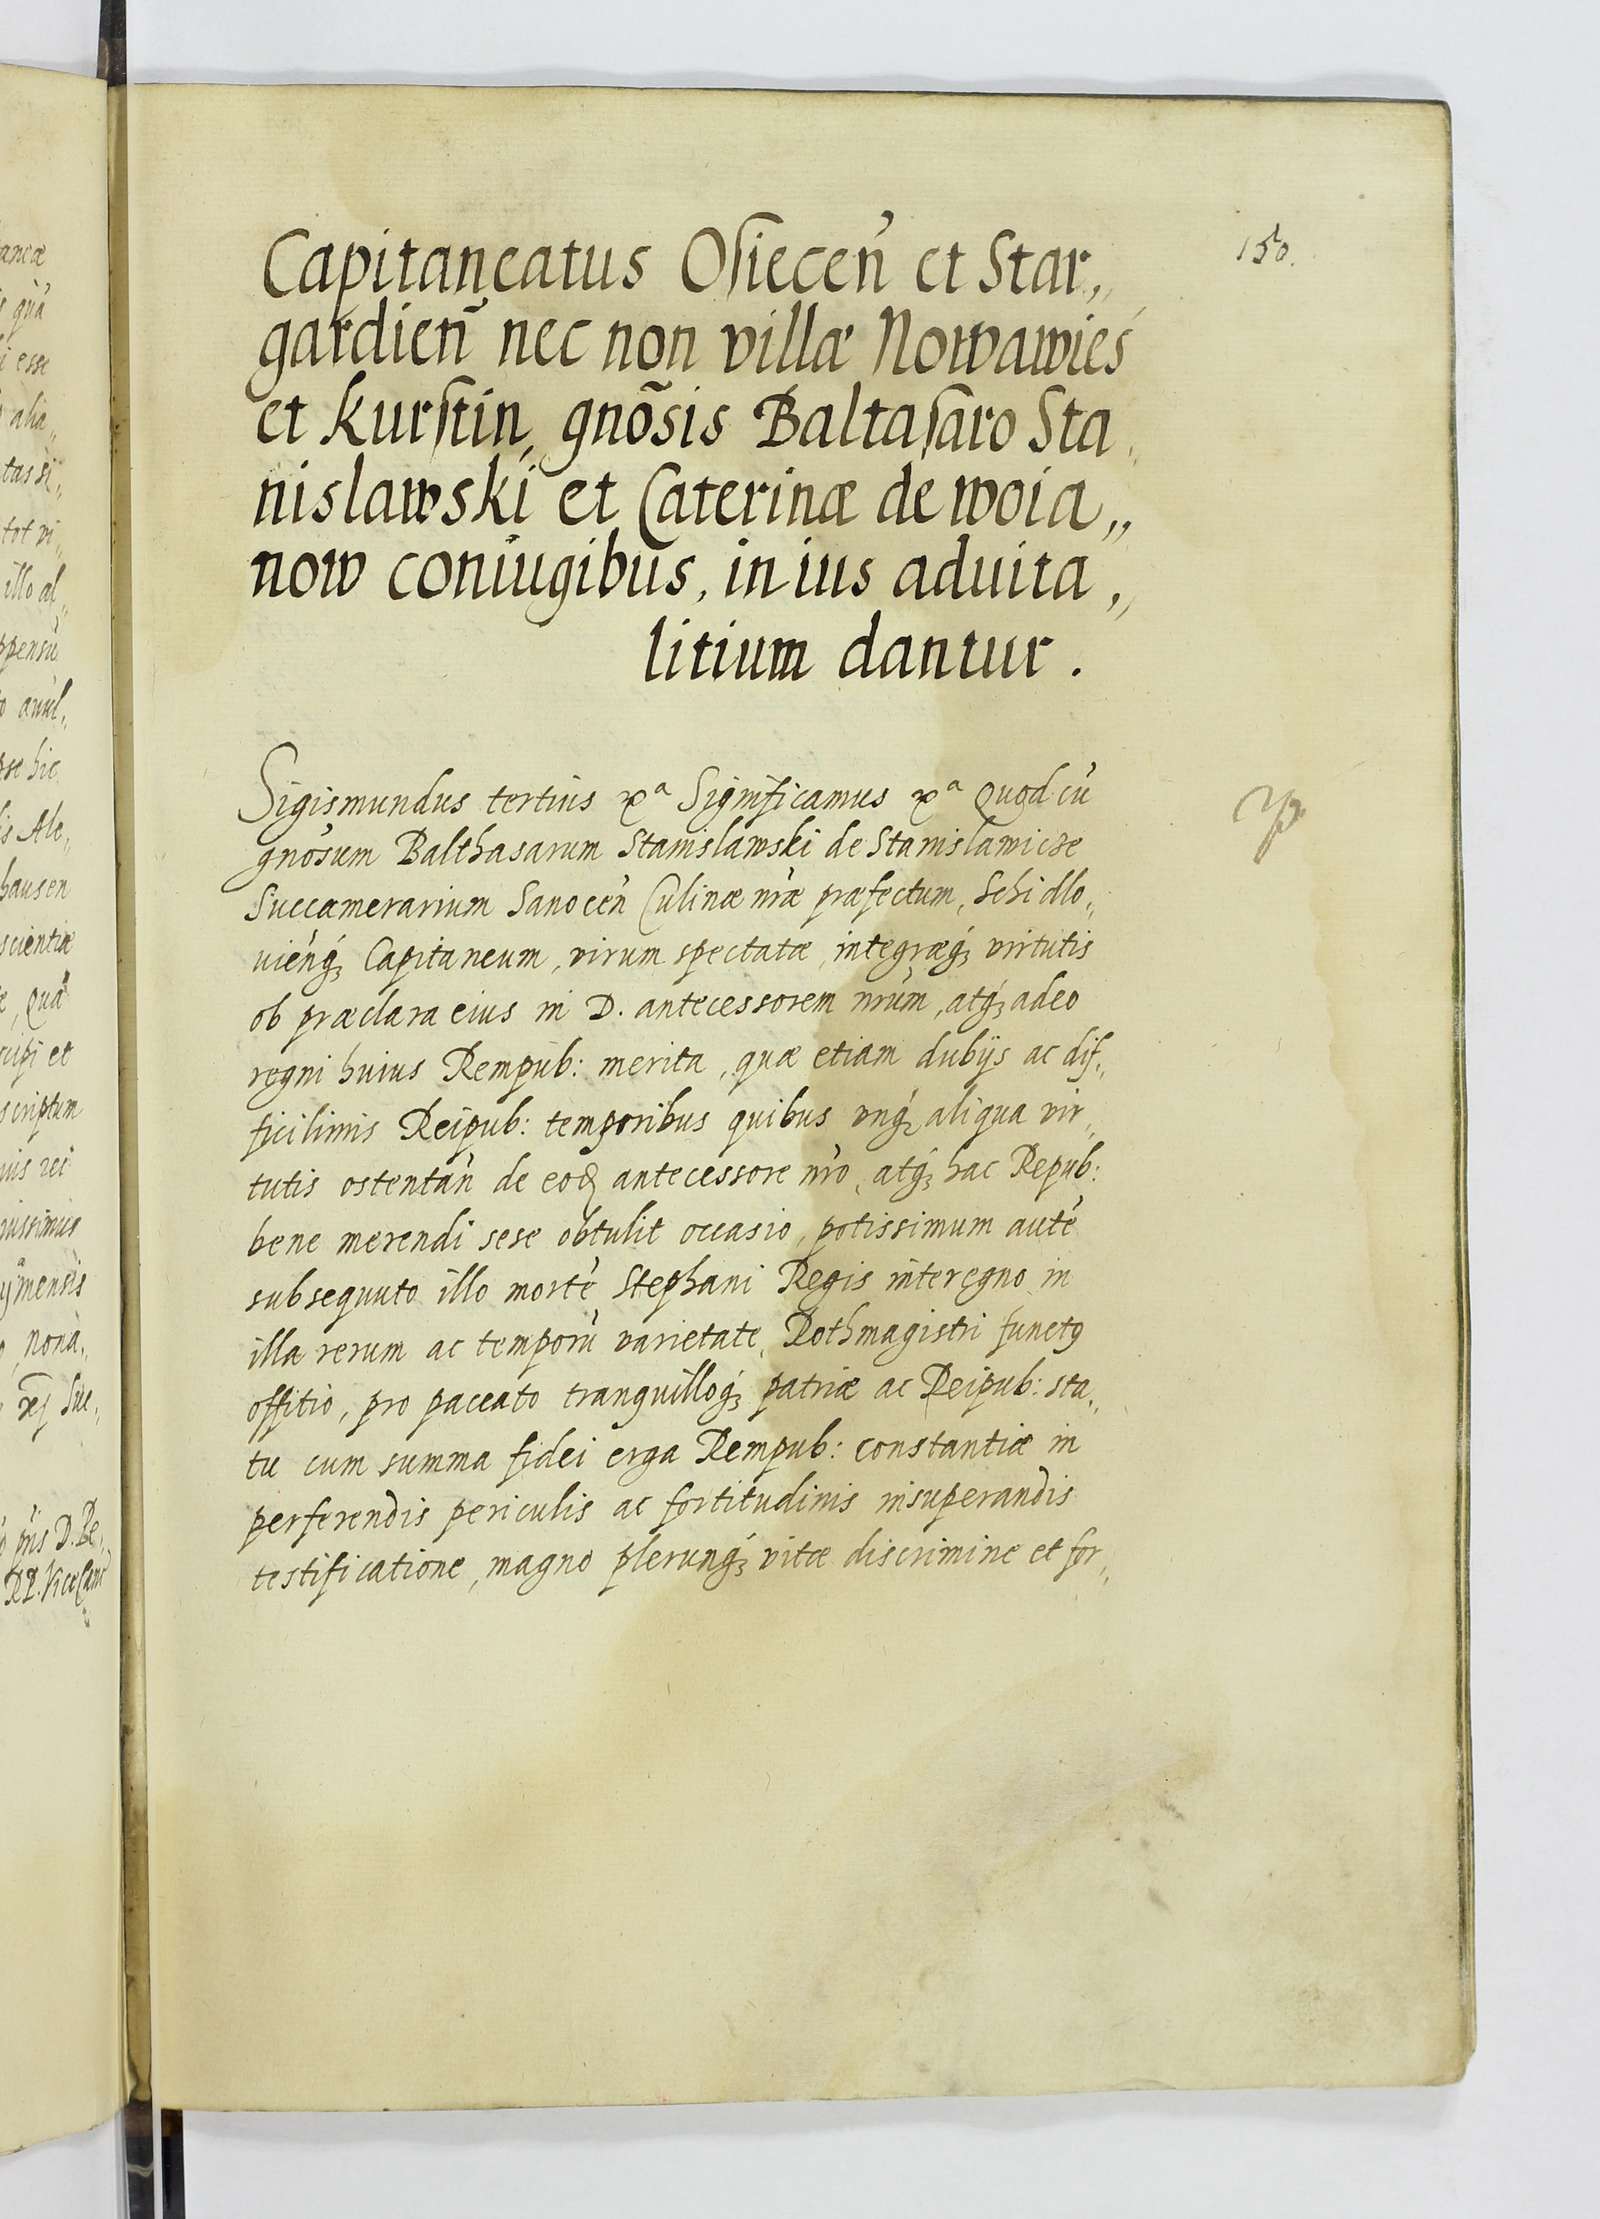 150.
Capitaneatus Osiecen̄ et Star„
gardien̄ nec non villæ Nowawieś
et Kurstin, gnōsis Baltasaro Sta„
nislawski et Caterinæ de woia„
now coniugibus, in ius aduita„
litium dantur.
Sigismundus tertius &a Significamus &a Quod cū
gnōsum Balthasarum Stanislawski de Stanislawicze
Succamerarium Sanocen̄ Culinæ nr̄æ præfectum, Schidlo„
uien̄q; Capitaneum, virum spectatæ, integræq; virtutis
ob præclara eius in D. antecessorem nr̄um, atq; adeo
regni huius Rempub: merita, quæ etiam dubijs ac dif„
ficilimis Reipub: temporibus quibus vnq; aliqua vir„
tutis ostentan̄ de eod antecessore nr̄o, atq; hac Repub:
bene merendi sese obtulit occasio, potissimum autē
subsequuto illo mortē Stephani Regis interegno in
illa rerum ac temporū varietate, Rothmagistri funct9
offitio, pro paccato tranquilloq; patriæ ac Reipub: sta„
tu cum summa fidei erga Rempub: constantiæ in
perferendis periculis ac fortitudinis insuperandis
testificatione, magno plerunq; vitæ discrimine et for„
ancæ
s quā
i esse
alia„
tas si„
tot vi„
illo al„
ppensū
o auul„
pse hic
is Ale„
hausen
scientiæ
e, Quā
cipi et
scriptum
uis rei
nissimus
mensis
, nona„
Sue„
pn̄s D. Re„
RP. Vice Canc